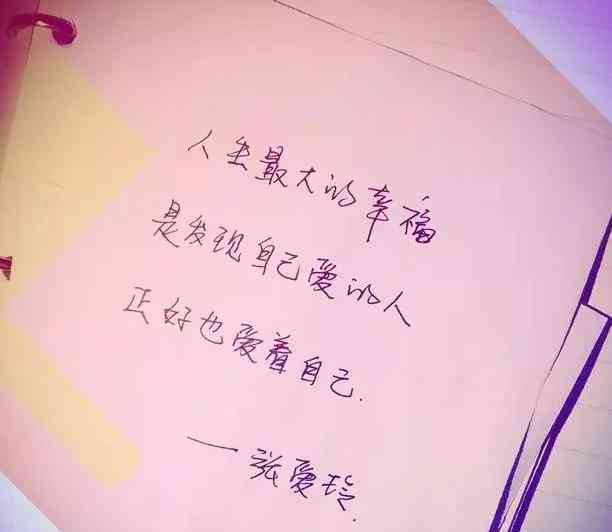 人生最大的幸福
是发现自己爱的人
正好也爱着自己.
—张爱玲.